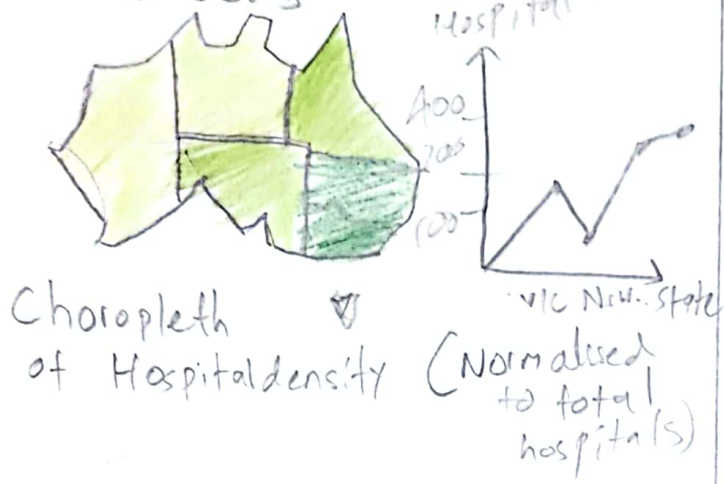 Hospital
400
200
100
VIC NSW.. State
Choropleth
of Hospital density
(Normalised
to total
hospitals)